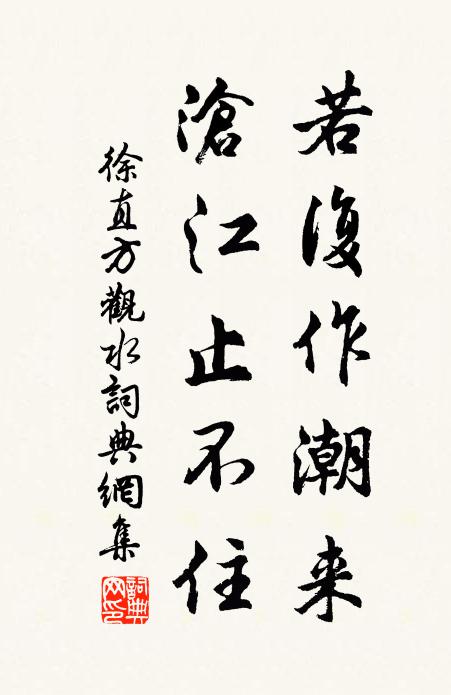 若復作潮来
滄江止不住
徐直方觀水詞典網集
詞典網印